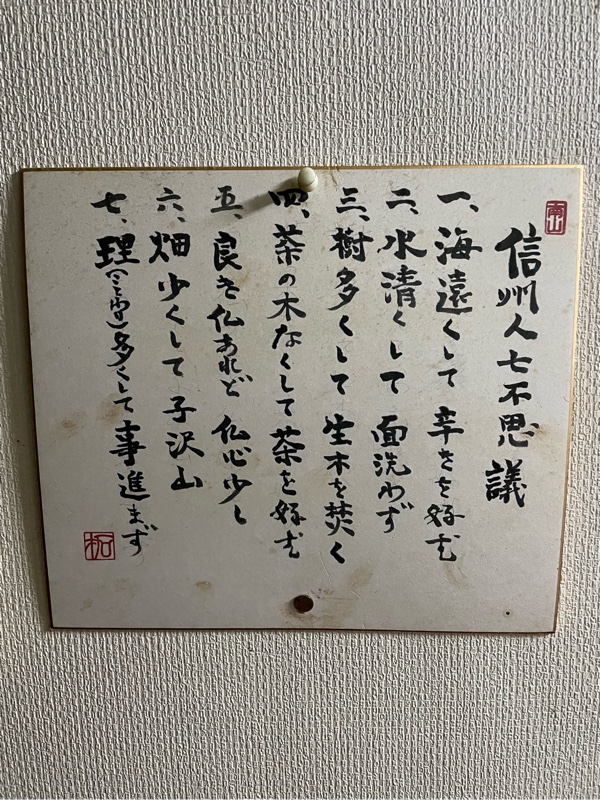 信州人七不思議
一、海遠くして 辛さを好む
二、水清くして 面洗わず
三、樹多くして 生木を焚く
四、茶の木なくして 茶を好む
五、良き仏あれど 仏心少し
六、畑少くして 子沢山
七、理(ことわり)多くして 事進まず